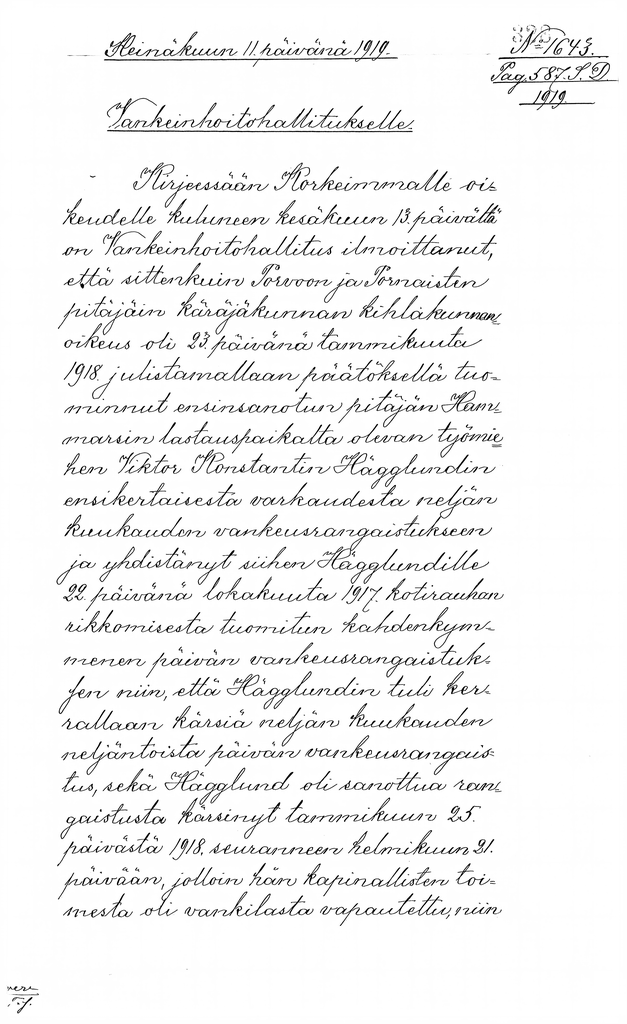 Heinäkuun 11. päivänä 1919.
No 1643.
Pag. 587. S. D.
1919.
Vankeinhoitohallitukselle.
Kirjeessään Korkeimmalle oi-
keudelle kuluneen kesäkuun 13. päivältä
on Vankeinhoitohallitus ilmoittanut,
että sittenkuin Porvoon ja Pornaisten
pitäjäin käräjäkunnan kihlakunnan
oikeus oli 23. päivänä tammikuuta
1918. julistamallaan päätöksellä tuo-
minnut ensinsanotun pitäjän Ham-
marsin lastauspaikalta olevan työmie
hen Viktor Konstantin Hägglundin
ensikertaisesta varkaudesta neljän
kuukauden vankeusrangaistukseen
ja yhdistänyt siihen Hägglundille
22. päivänä lokakuuta 1917. kotirauhan
rikkomisesta tuomitun kahdenkym-
menen päivän vankeusrangaistuk-
sen niin, että Hägglundin tuli ker-
rallaan kärsiä neljän kuukauden
neljäntoista päivän vankeusrangais-
tus, sekä Hägglund oli sanottua ran-
gaistusta kärsinyt tammikuun 25.
päivästä 1918. seuranneen helmikuun 21.
päivään, jolloin hän kapinallisten toi-
mesta oli vankilasta vapautettu, niin